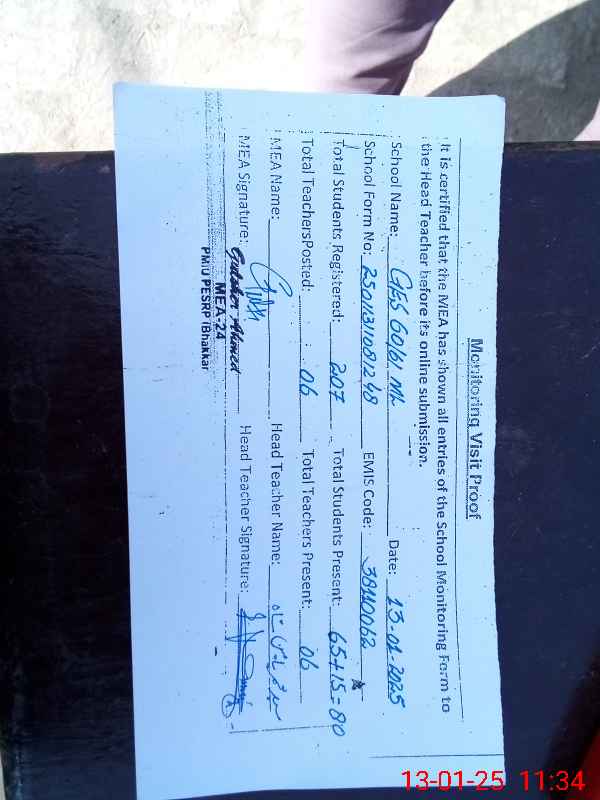 Monitoring Visit Proof
It is certified that the MEA has shown all entries of the School Monitoring Form to
the Head Teacher before its online submission.
School Name: GES 60/61 ML Date: 13-01-2025
School Form No: 2501131081248 EMIS Code: 38110062
Total Students Registered: 207 Total Students Present: 65+15=80
Total TeachersPosted: 06 Total Teachers Present: 06
MEA Name: Head Teacher Name:
MEA Signature: Ahmed Head Teacher Signature:
MEA-24
PMIU PESRP (Bhakkar
13-01-25 11:34